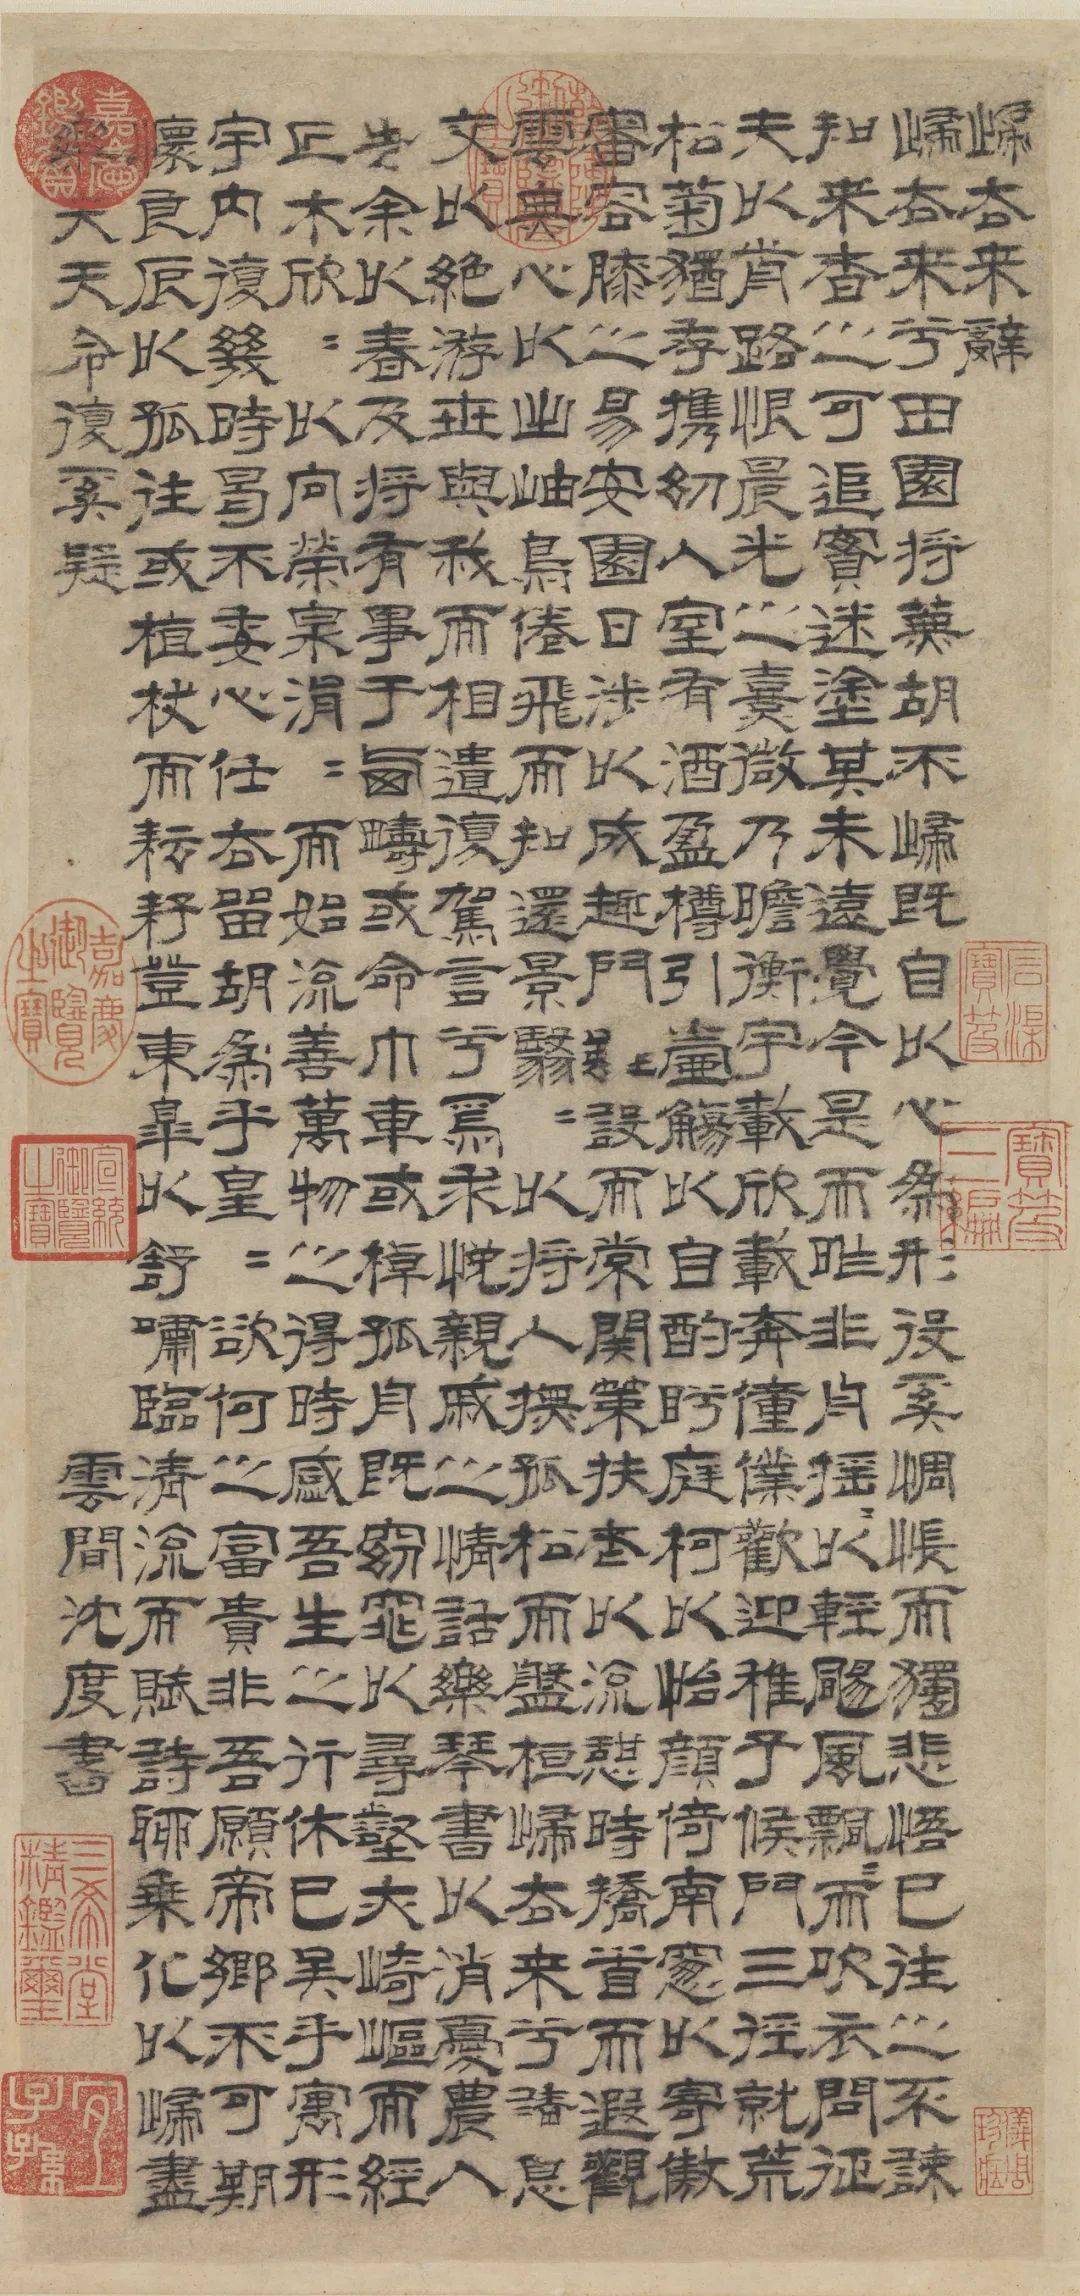 歸去來辭
歸去來兮田園將蕪胡不歸既自以心為形役奚惆悵而獨悲悟已往之不諫
知來者之可追實迷塗其未遠覺今是而昨非舟搖〻以輕颺風飄〻而吹衣問征
夫以前路恨晨光之熹微乃瞻衡宇載欣載奔僮僕歡迎稚子候門三徑就荒
松菊猶存攜幼入室有酒盈樽引壺觴以自酌眄庭柯以怡顏倚南窗以寄傲
審容膝之易安園日涉以成趣門雖設而常關策扶老以流憩時矯首而遐觀
雲無心以出岫鳥倦飛而知還景翳〻以將入撫孤松而盤桓歸去來兮請息
交以絕游世與我而相遺復駕言兮焉求悅親戚之情話樂琴書以消憂農人
告余以春及將有事于西疇或命巾車或棹孤舟既窈窕以尋壑亦崎嶇而經
丘木欣〻以向榮泉涓〻而始流善萬物之得時感吾生之行休已矣乎寓形
宇內復幾時曷不委心任去留胡為乎皇〻欲何之富貴非吾願帝鄉不可期
懷良辰以孤往或植杖而耘耔登東皋以舒嘯臨清流而賦詩聊乘化以歸盡
樂夫天命復奚疑
雲間沈度書
石渠寶笈
寶笈三編
乾隆御覽之寶
嘉慶御覽之寶
宣統御覽之寶
三希堂精鑑璽
宜子孫